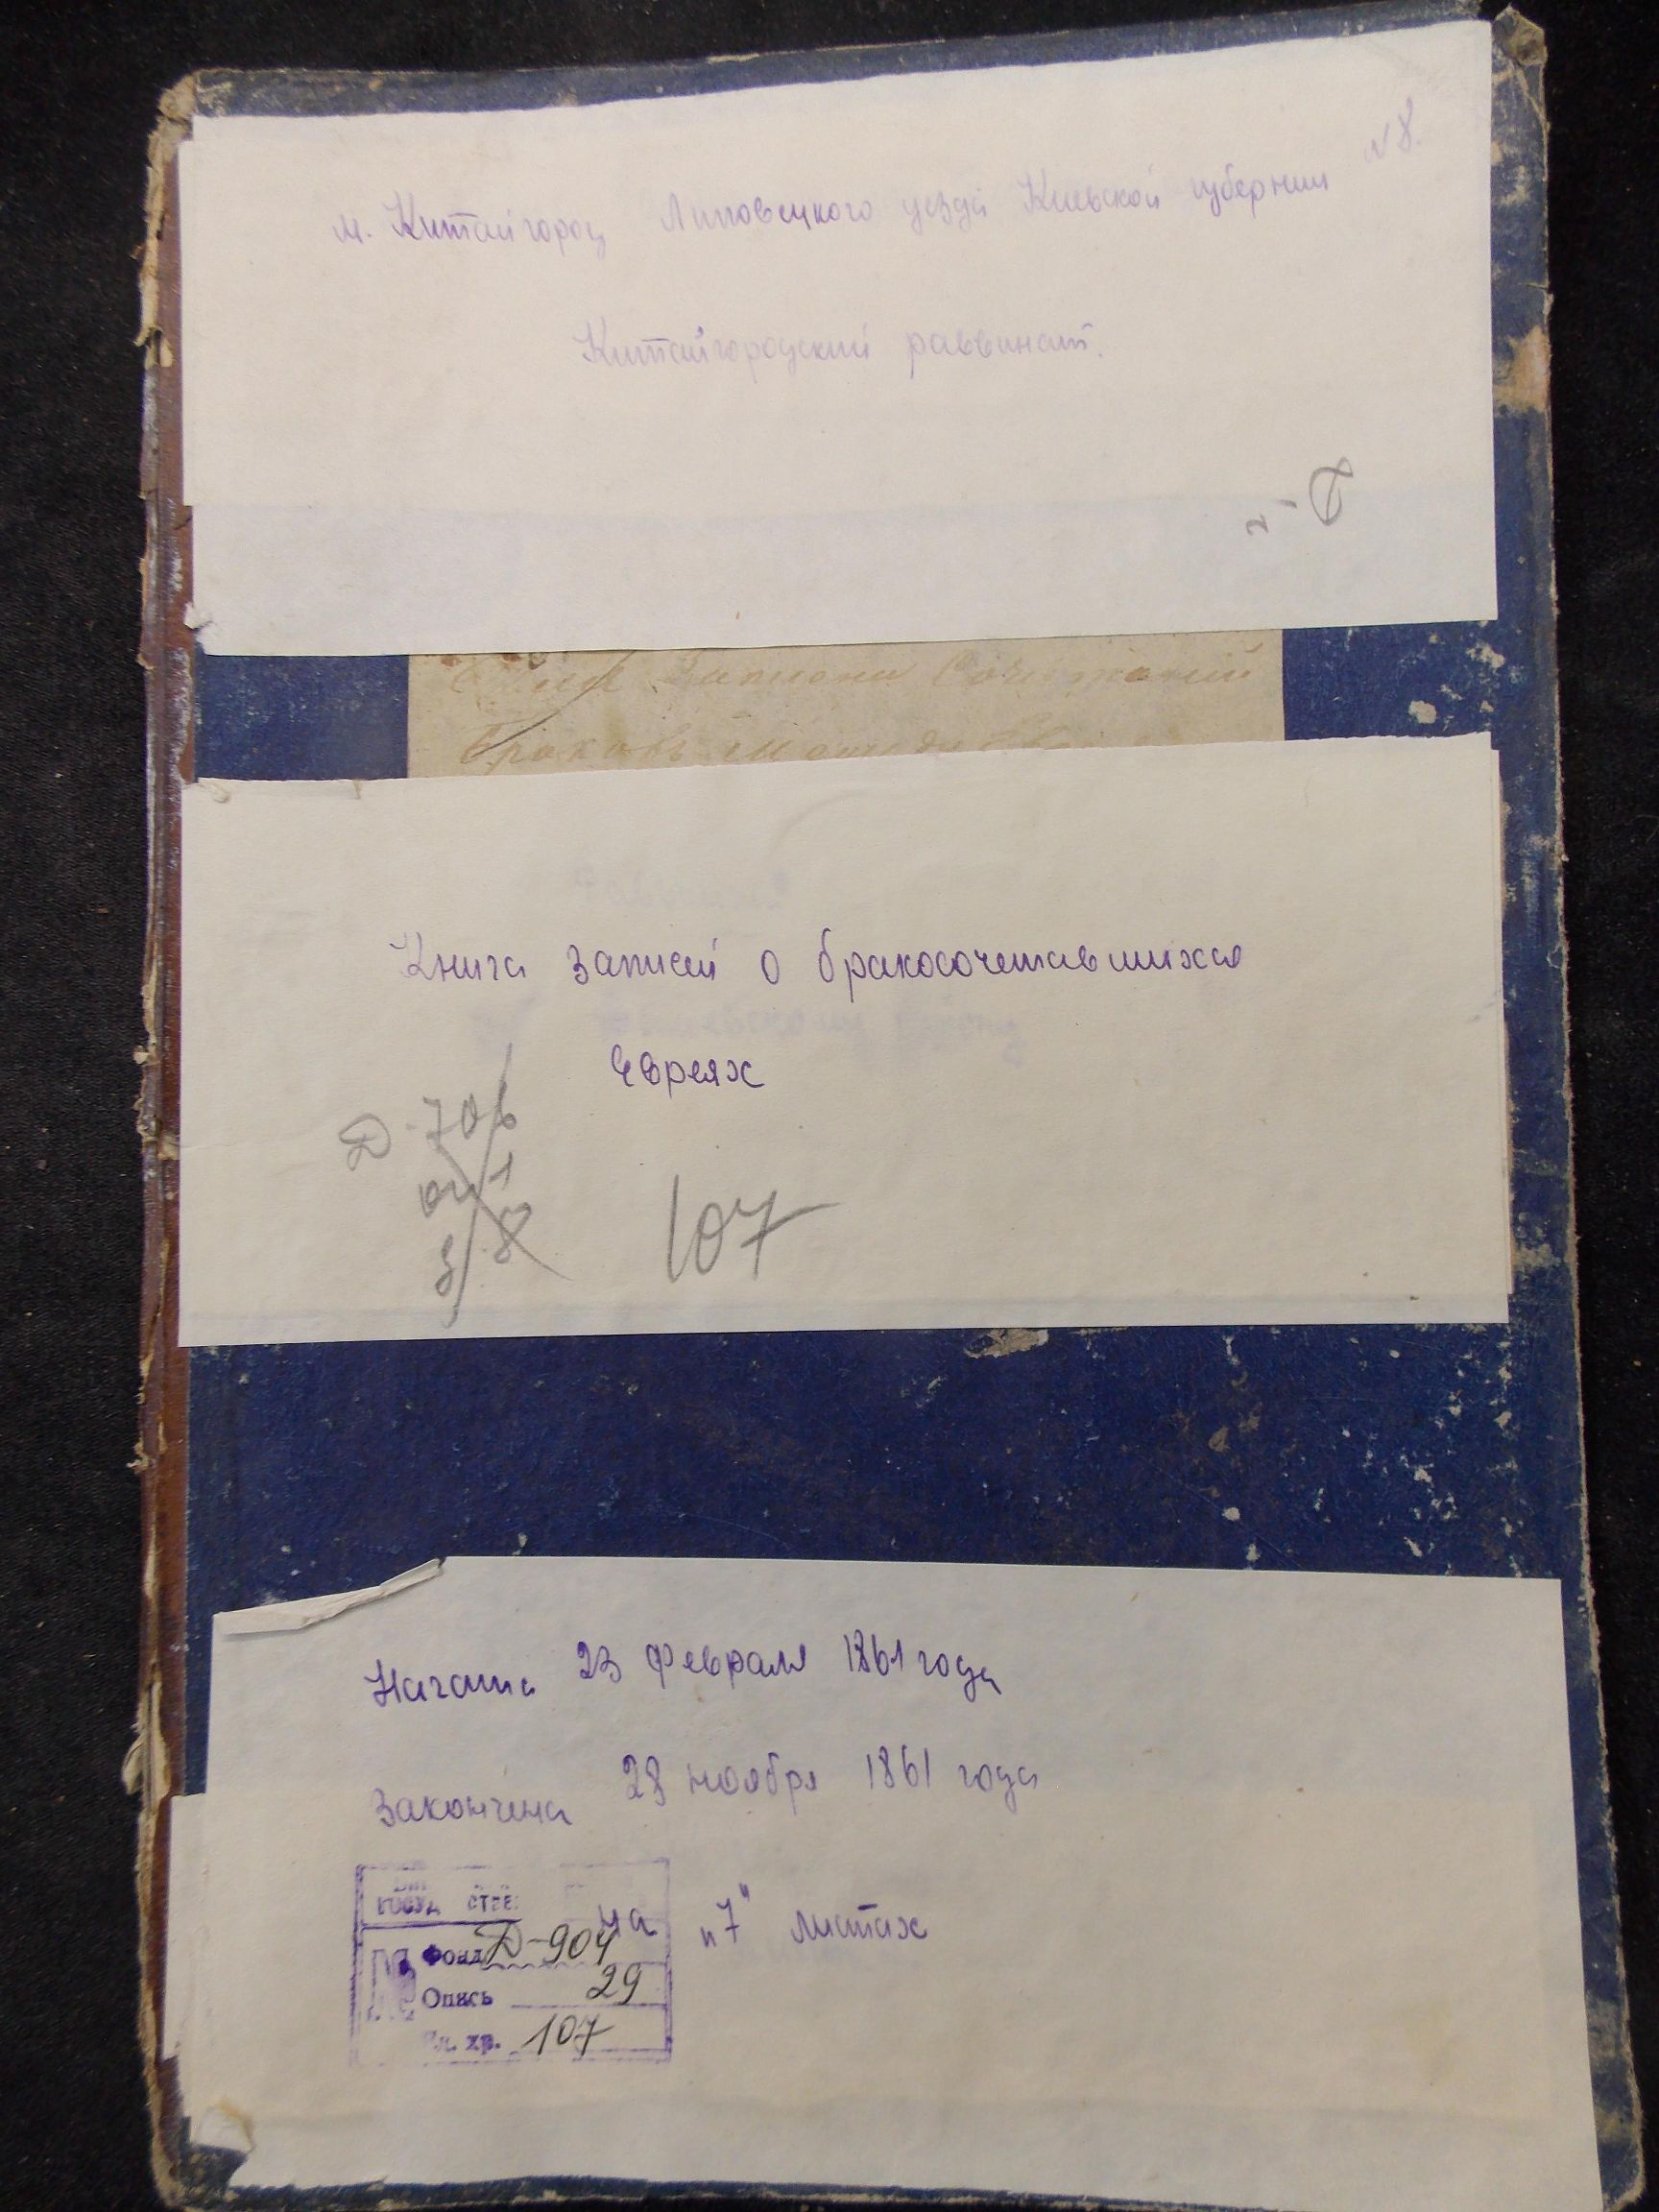 № 8.
м. Китайгород Липовецкого уезда Киевской губернии
Китайгородский раввинат.
Д-2
Записки Сочетаний
Браковъ между
Книга записей о бракосочетавшихся
евреях
Д-706
оп 1
8
107
Начата 23 февраля 1861 года
Закончена 28 ноября 1861 года
на "7" листах
Фонд Д-904
Опись 29
Ед. хр. 107